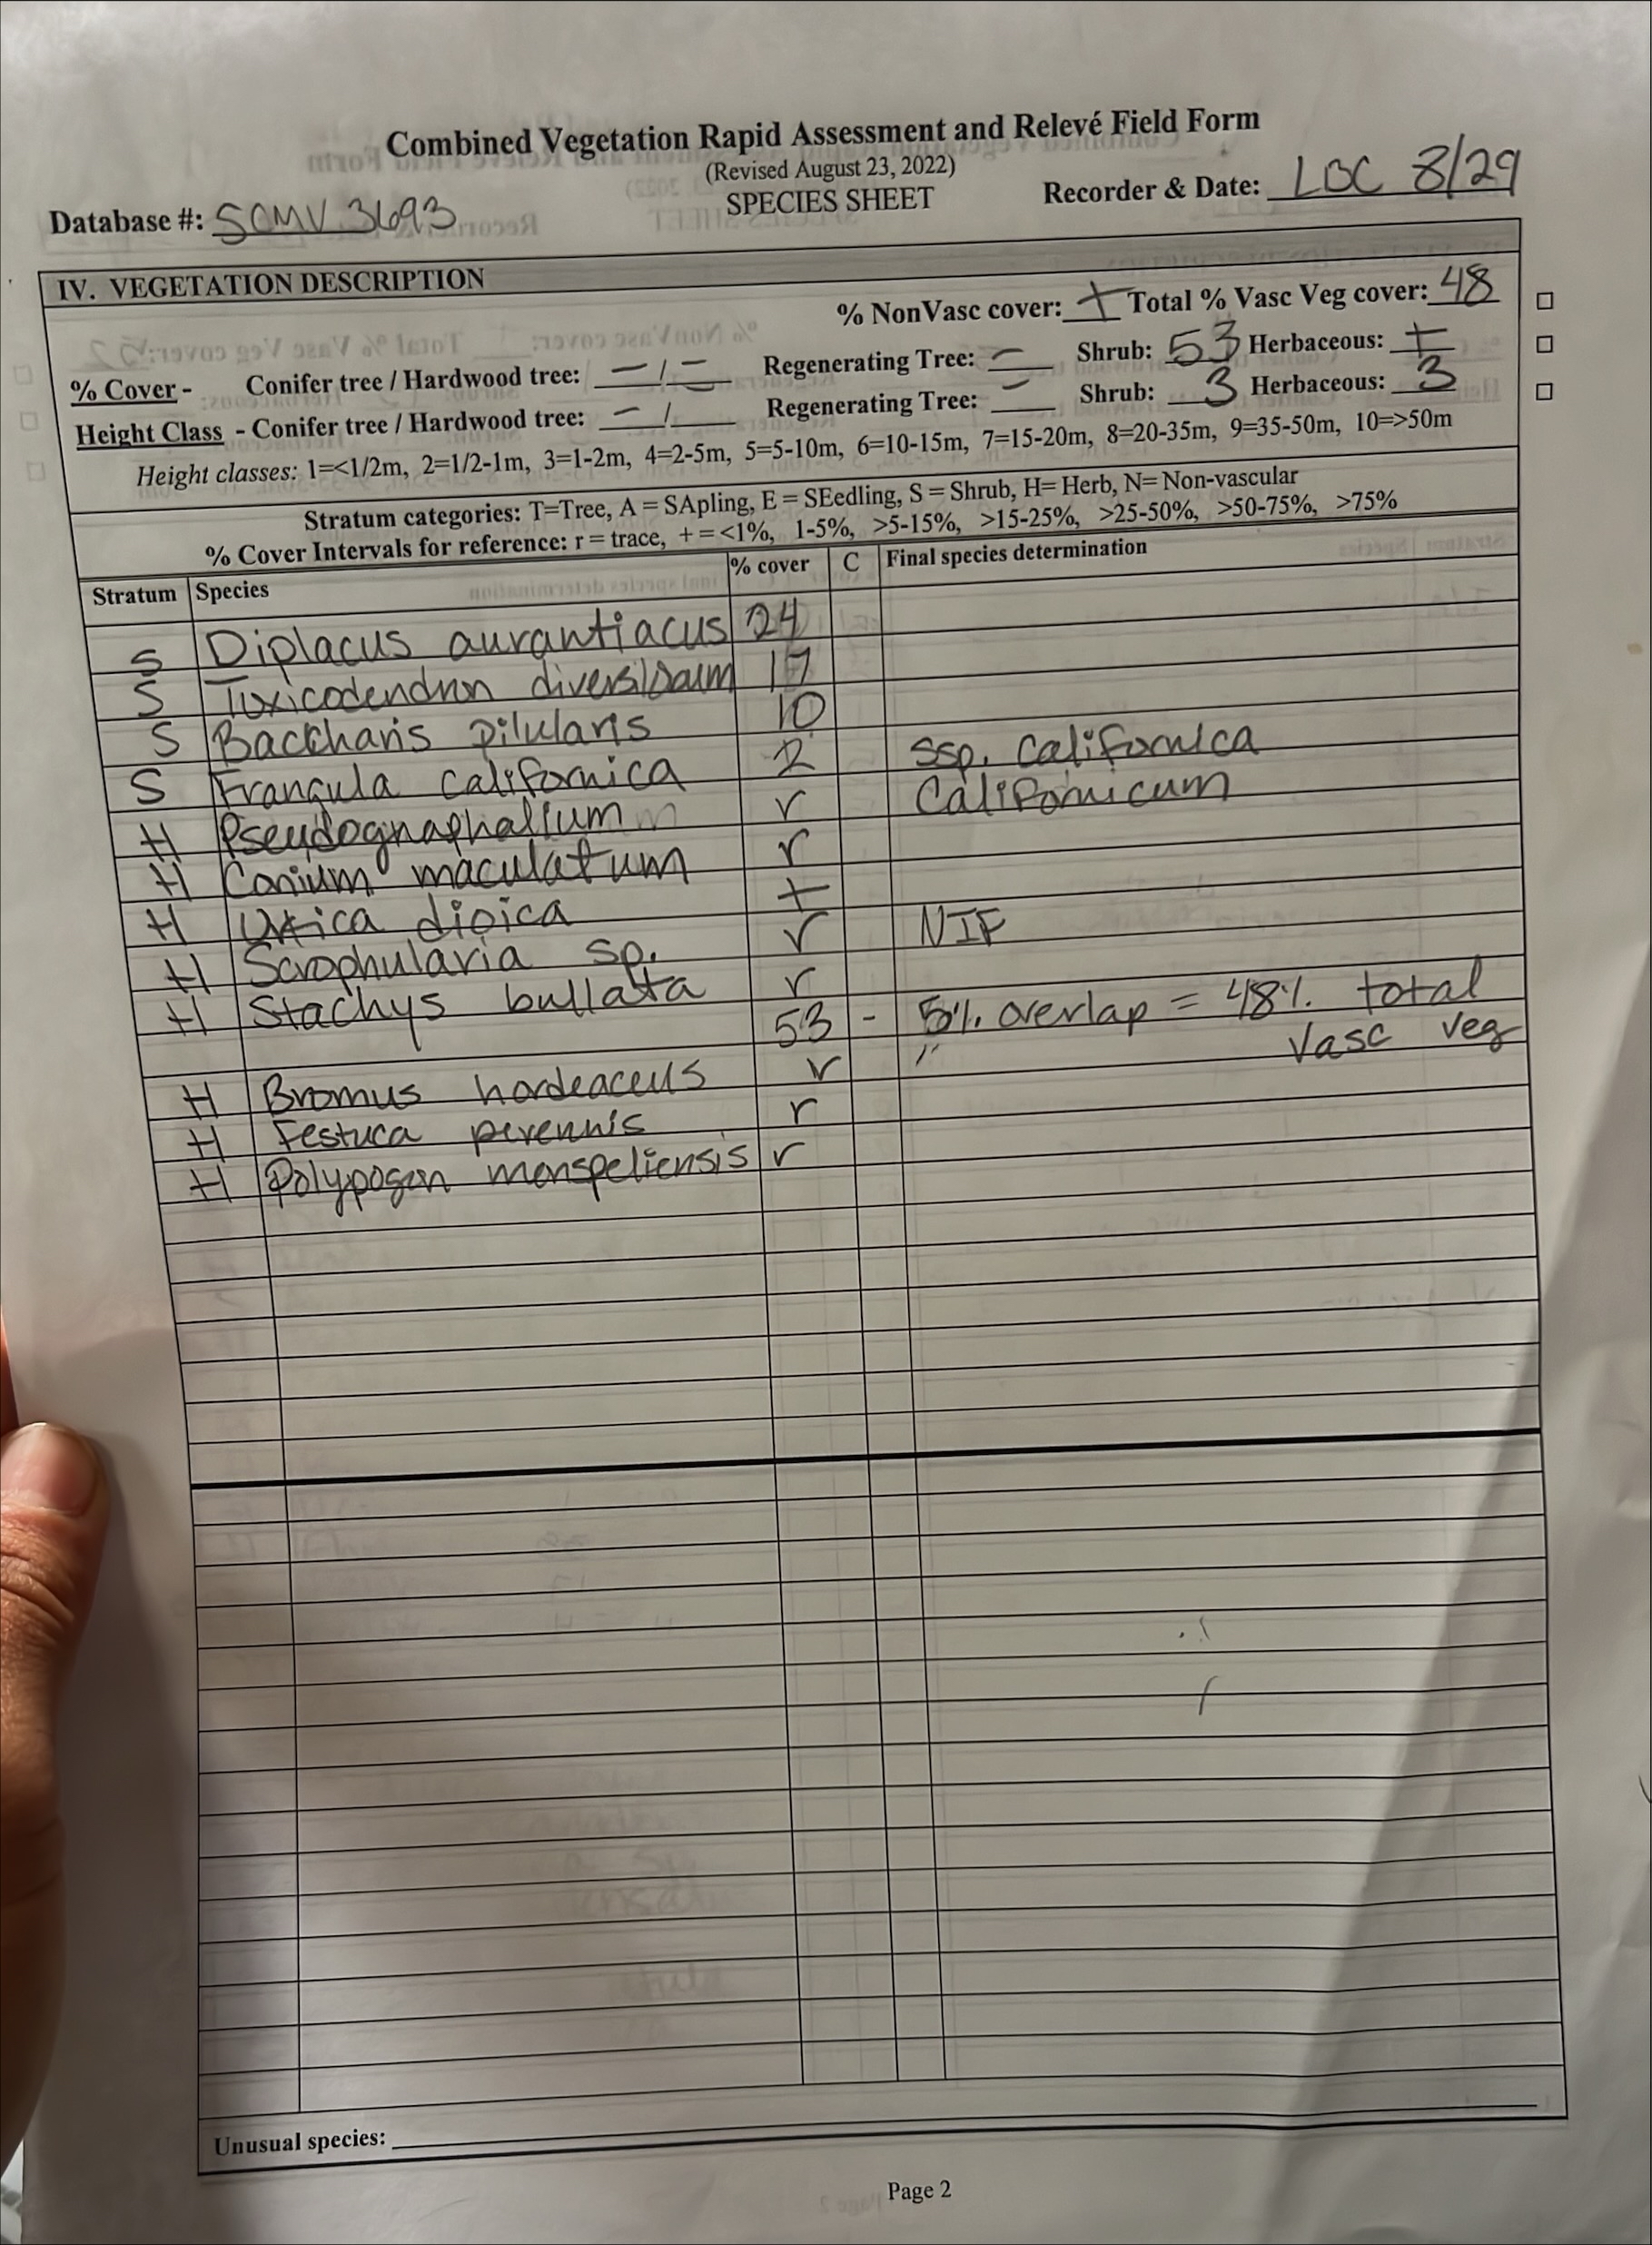 Combined Vegetation Rapid Assessment and Relevé Field Form
(Revised August 23, 2022)
SPECIES SHEET
Database #: SCMV3693
Recorder & Date: LDC 8/29
IV. VEGETATION DESCRIPTION
% NonVasc cover: + Total % Vasc Veg cover: 48
% Cover - Conifer tree / Hardwood tree: - / - Regenerating Tree: - Shrub: 53 Herbaceous: +
Height Class - Conifer tree / Hardwood tree: - / Regenerating Tree: - Shrub: 3 Herbaceous: 3
Height classes: 1=<1/2m, 2=1/2-1m, 3=1-2m, 4=2-5m, 5=5-10m, 6=10-15m, 7=15-20m, 8=20-35m, 9=35-50m, 10=>50m
Stratum categories: T=Tree, A = SApling, E = SEedling, S = Shrub, H= Herb, N= Non-vascular
% Cover Intervals for reference: r = trace, + = <1%, 1-5%, >5-15%, >15-25%, >25-50%, >50-75%, >75%
Stratum Species % cover C Final species determination
S Diplacus aurantiacus 24
S Toxicodendron diversilobum 17
S Baccharis pilularis 10
S Frangula californica 2 Ssp. Californica
H Pseudognaphalium r Californicum
H Conium maculatum r
H Urtica dioica +
H Scrophularia sp. r NIF
H Stachys bullata r
53 - 5% overlap = 48% total
Vasc veg
H Bromus hordeaceus r
H Festuca perennis r
H Polypogon monspeliensis r
Unusual species:
Page 2